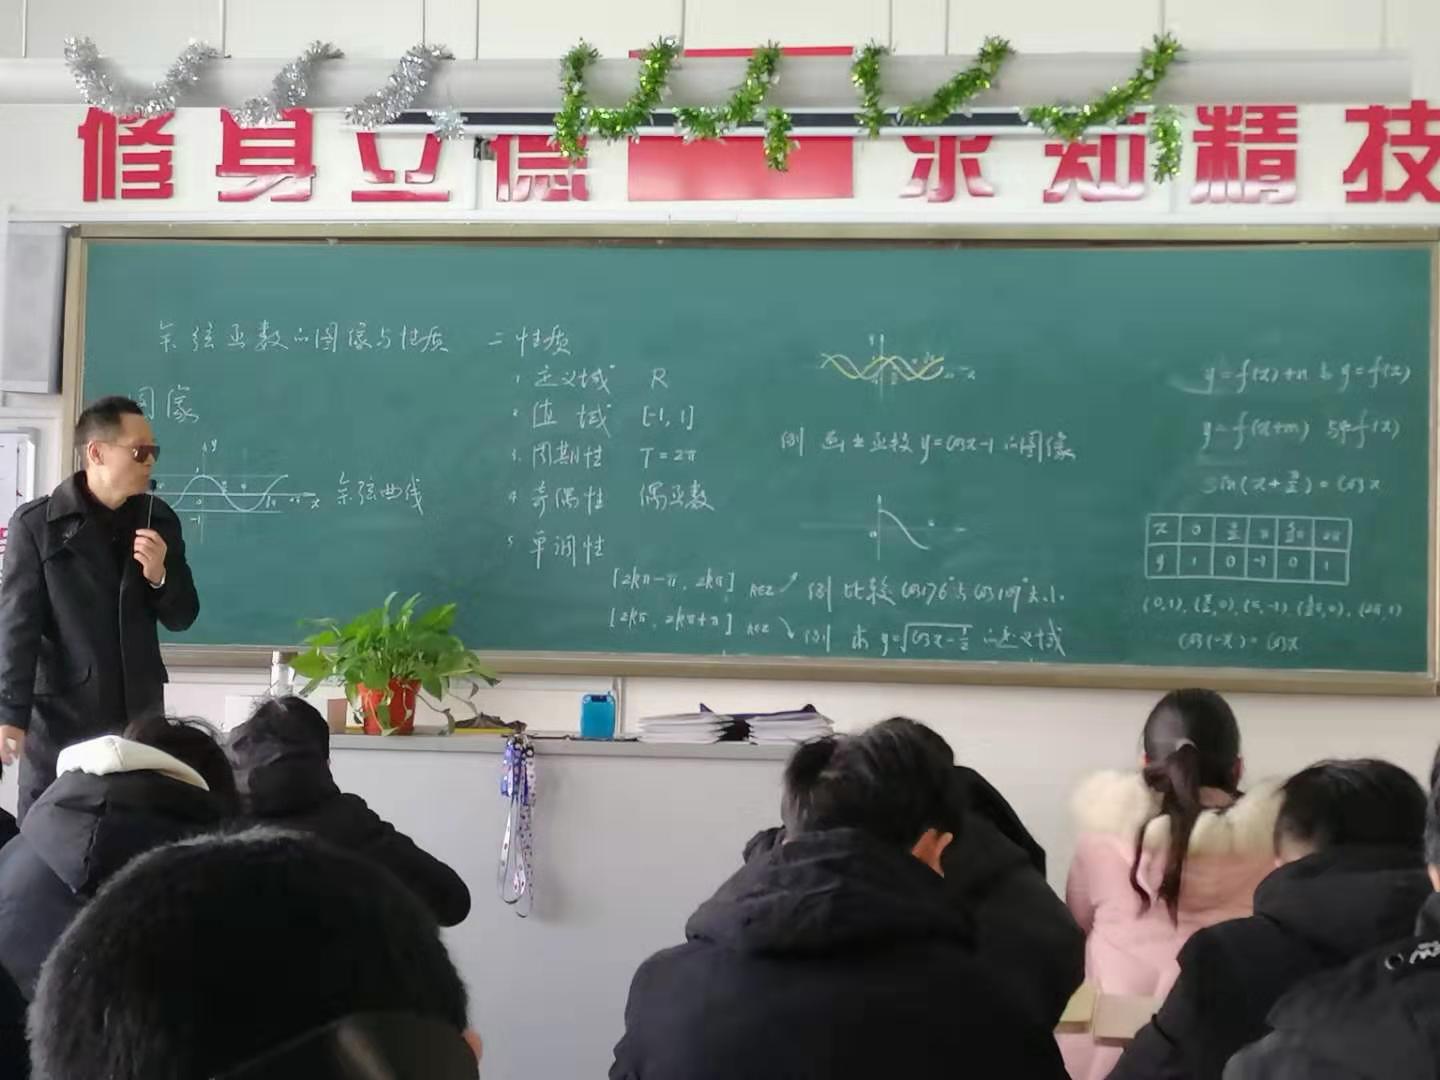 修身立德 求知精技
余弦函数的图像与性质
图像
y
1
0
-1
x
余弦曲线
二 性质
1. 定义域 R
2. 值域 [-1, 1]
3. 周期性 T=2π
4. 奇偶性 偶函数
5. 单调性
[2kπ-π, 2kπ] k∈Z
[2kπ, 2kπ+π] k∈Z
例 画出函数 y=cosx-1 的图像
例 比较 cos176°与cos109°大小.
例 求 y=√(cosx-1/2) 的定义域
y=f(x)+n 与 y=f(x)
y=f(x+m) 与 f(x)
sin(x+π/2)=cosx
x 0 π/2 π 3/2π 2π
y 1 0 -1 0 1
(0,1), (π/2,0), (π,-1), (3/2π,0), (2π,1)
cos(-x)=cosx